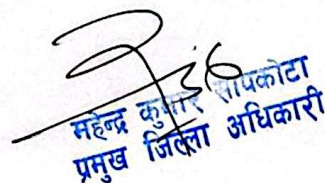 महेन्द्र कुमार सापकोटा
प्रमुख जिल्ला अधिकारी